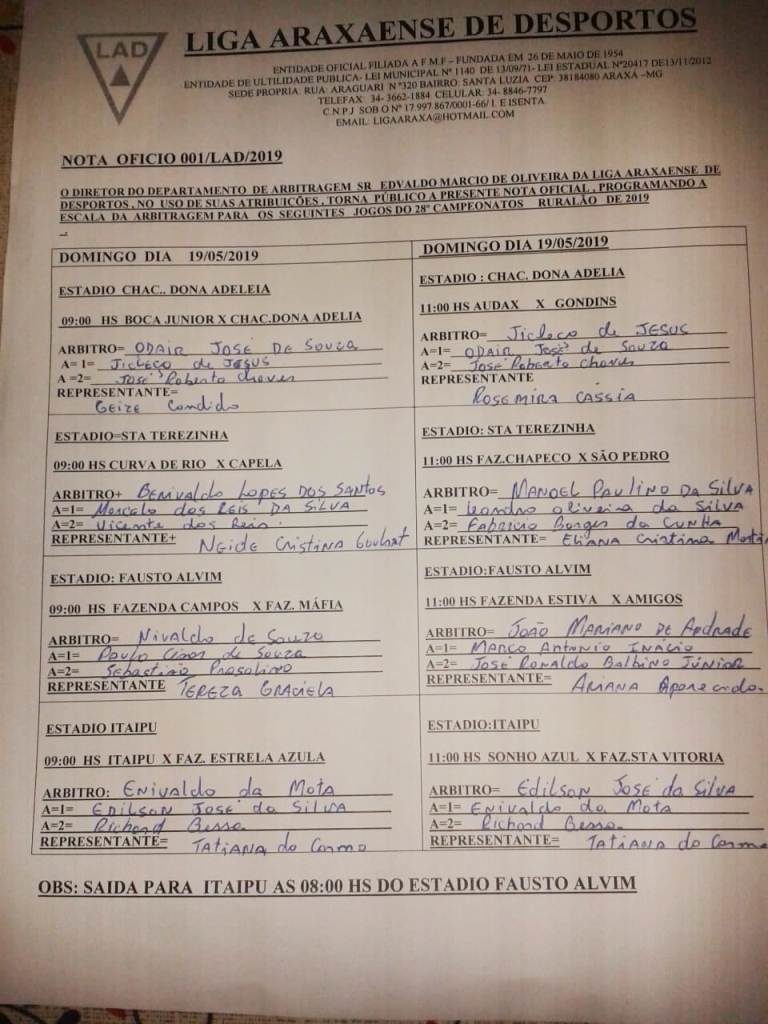 LAD
LIGA ARAXAENSE DE DESPORTOS
ENTIDADE OFICIAL FILIADA A F.M.F – FUNDADA EM 26 DE MAIO DE 1954
ENTIDADE DE ULTILIDADE PUBLICA- LEI MUNICIPAL Nº 1140 DE 13/09/71- LEI ESTADUAL Nº20417 DE13/11/2012
SEDE PROPRIA: RUA: ARAGUARI N º320 BAIRRO: SANTA LUZIA CEP: 38184080 ARAXÁ –MG
TELEFAX: 34- 3662-1884 CELULAR: 34- 8846-7797
C.N.P.J SOB O Nº 17.997.867/0001-66/ I. E ISENTA.
EMAIL: LIGAARAXA@HOTMAIL.COM
NOTA OFICIO 001/LAD/2019
O DIRETOR DO DEPARTAMENTO DE ARBITRAGEM SR EDVALDO MARCIO DE OLIVEIRA DA LIGA ARAXAENSE DE
DESPORTOS , NO USO DE SUAS ATRIBUICÕES , TORNA PÚBLICO A PRESENTE NOTA OFICIAL , PROGRAMANDO A
ESCALA DA ARBITRAGEM PARA OS SEGUINTES JOGOS DO 28º CAMPEONATOS RURALÃO DE 2019
DOMINGO DIA 19/05/2019
ESTADIO CHAC.. DONA ADELEIA
09:00 HS BOCA JUNIOR X CHAC.DONA ADELIA
ARBITRO= ODAIR JOSÉ DE SOUZA
A= 1= Jicleço de JESUS
A =2= José Roberto Chaves
REPRESENTANTE=
Geize Candido
DOMINGO DIA 19/05/2019
ESTADIO : CHAC. DONA ADELIA
11:00 HS AUDAX X GONDINS
ARBITRO= Jicleço de JESUS
A=1= ODAIR José de Souza
A =2= José Roberto Chaves
REPRESENTANTE
ROSEMIRA CÁSSIA
ESTADIO=STA TEREZINHA
09:00 HS CURVA DE RIO X CAPELA
ARBITRO+ BENIVALDO LOPES DOS SANTOS
A=1= Marcelo dos REIS DA SILVA
A=2= Vicente dos Reis
REPRESENTANTE+ NEIDE CRISTINA Goulart
ESTADIO: STA TEREZINHA
11:00 HS FAZ.CHAPECO X SÃO PEDRO
ARBITRO= MANOEL PAULINO DA SILVA
A=1= Leandro oliveira da SILVA
A=2= FABRICIO Borges da CUNHA
REPRESENTANTE= ELIANA CRISTINA
ESTADIO: FAUSTO ALVIM
09:00 HS FAZENDA CAMPOS X FAZ. MÁFIA
ARBITRO= Nivaldo de Souza
A=1= Paulo Cesar de Souza
A=2= Sebastião
REPRESENTANTE TEREZA GRACIELA
ESTADIO:FAUSTO ALVIM
11:00 HS FAZENDA ESTIVA X AMIGOS
ARBITRO= JOÃO MARIANO DE ANDRADE
A=1= MARCO ANTONIO INÁCIO
A=2= JOSÉ RONALDO Balbino JÚNIOR
REPRESENTANTE= ARIANA Aparecida
ESTADIO ITAIPU
09:00 HS ITAIPU X FAZ. ESTRELA AZULA
ARBITRO: ENIVALDO da MOTA
A=1= EDILSON JOSÉ da SILVA
A=2= Richard Bessa
REPRESENTANTE= TATIANA do Carmo
ESTADIO:ITAIPU
11:00 HS SONHO AZUL X FAZ.STA VITORIA
ARBITRO= Edilson José da SILVA
A=1= ENIVALDO da Mota
A=2= Richard Bessa
REPRESENTANTE= TATIANA do Carmo
OBS: SAIDA PARA ITAIPU AS 08:00 HS DO ESTADIO FAUSTO ALVIM